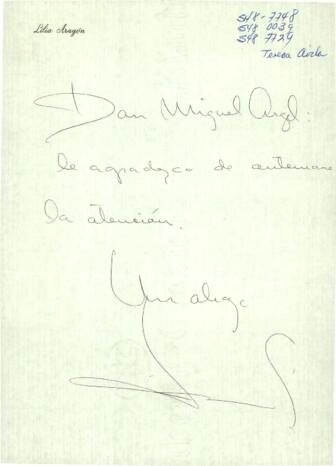 Lilia Aragón
548-7748
548 0039
548 7729
Teresa
Don Miguel Angel:
le agradezco de antemano
la atención.
Un abrazo